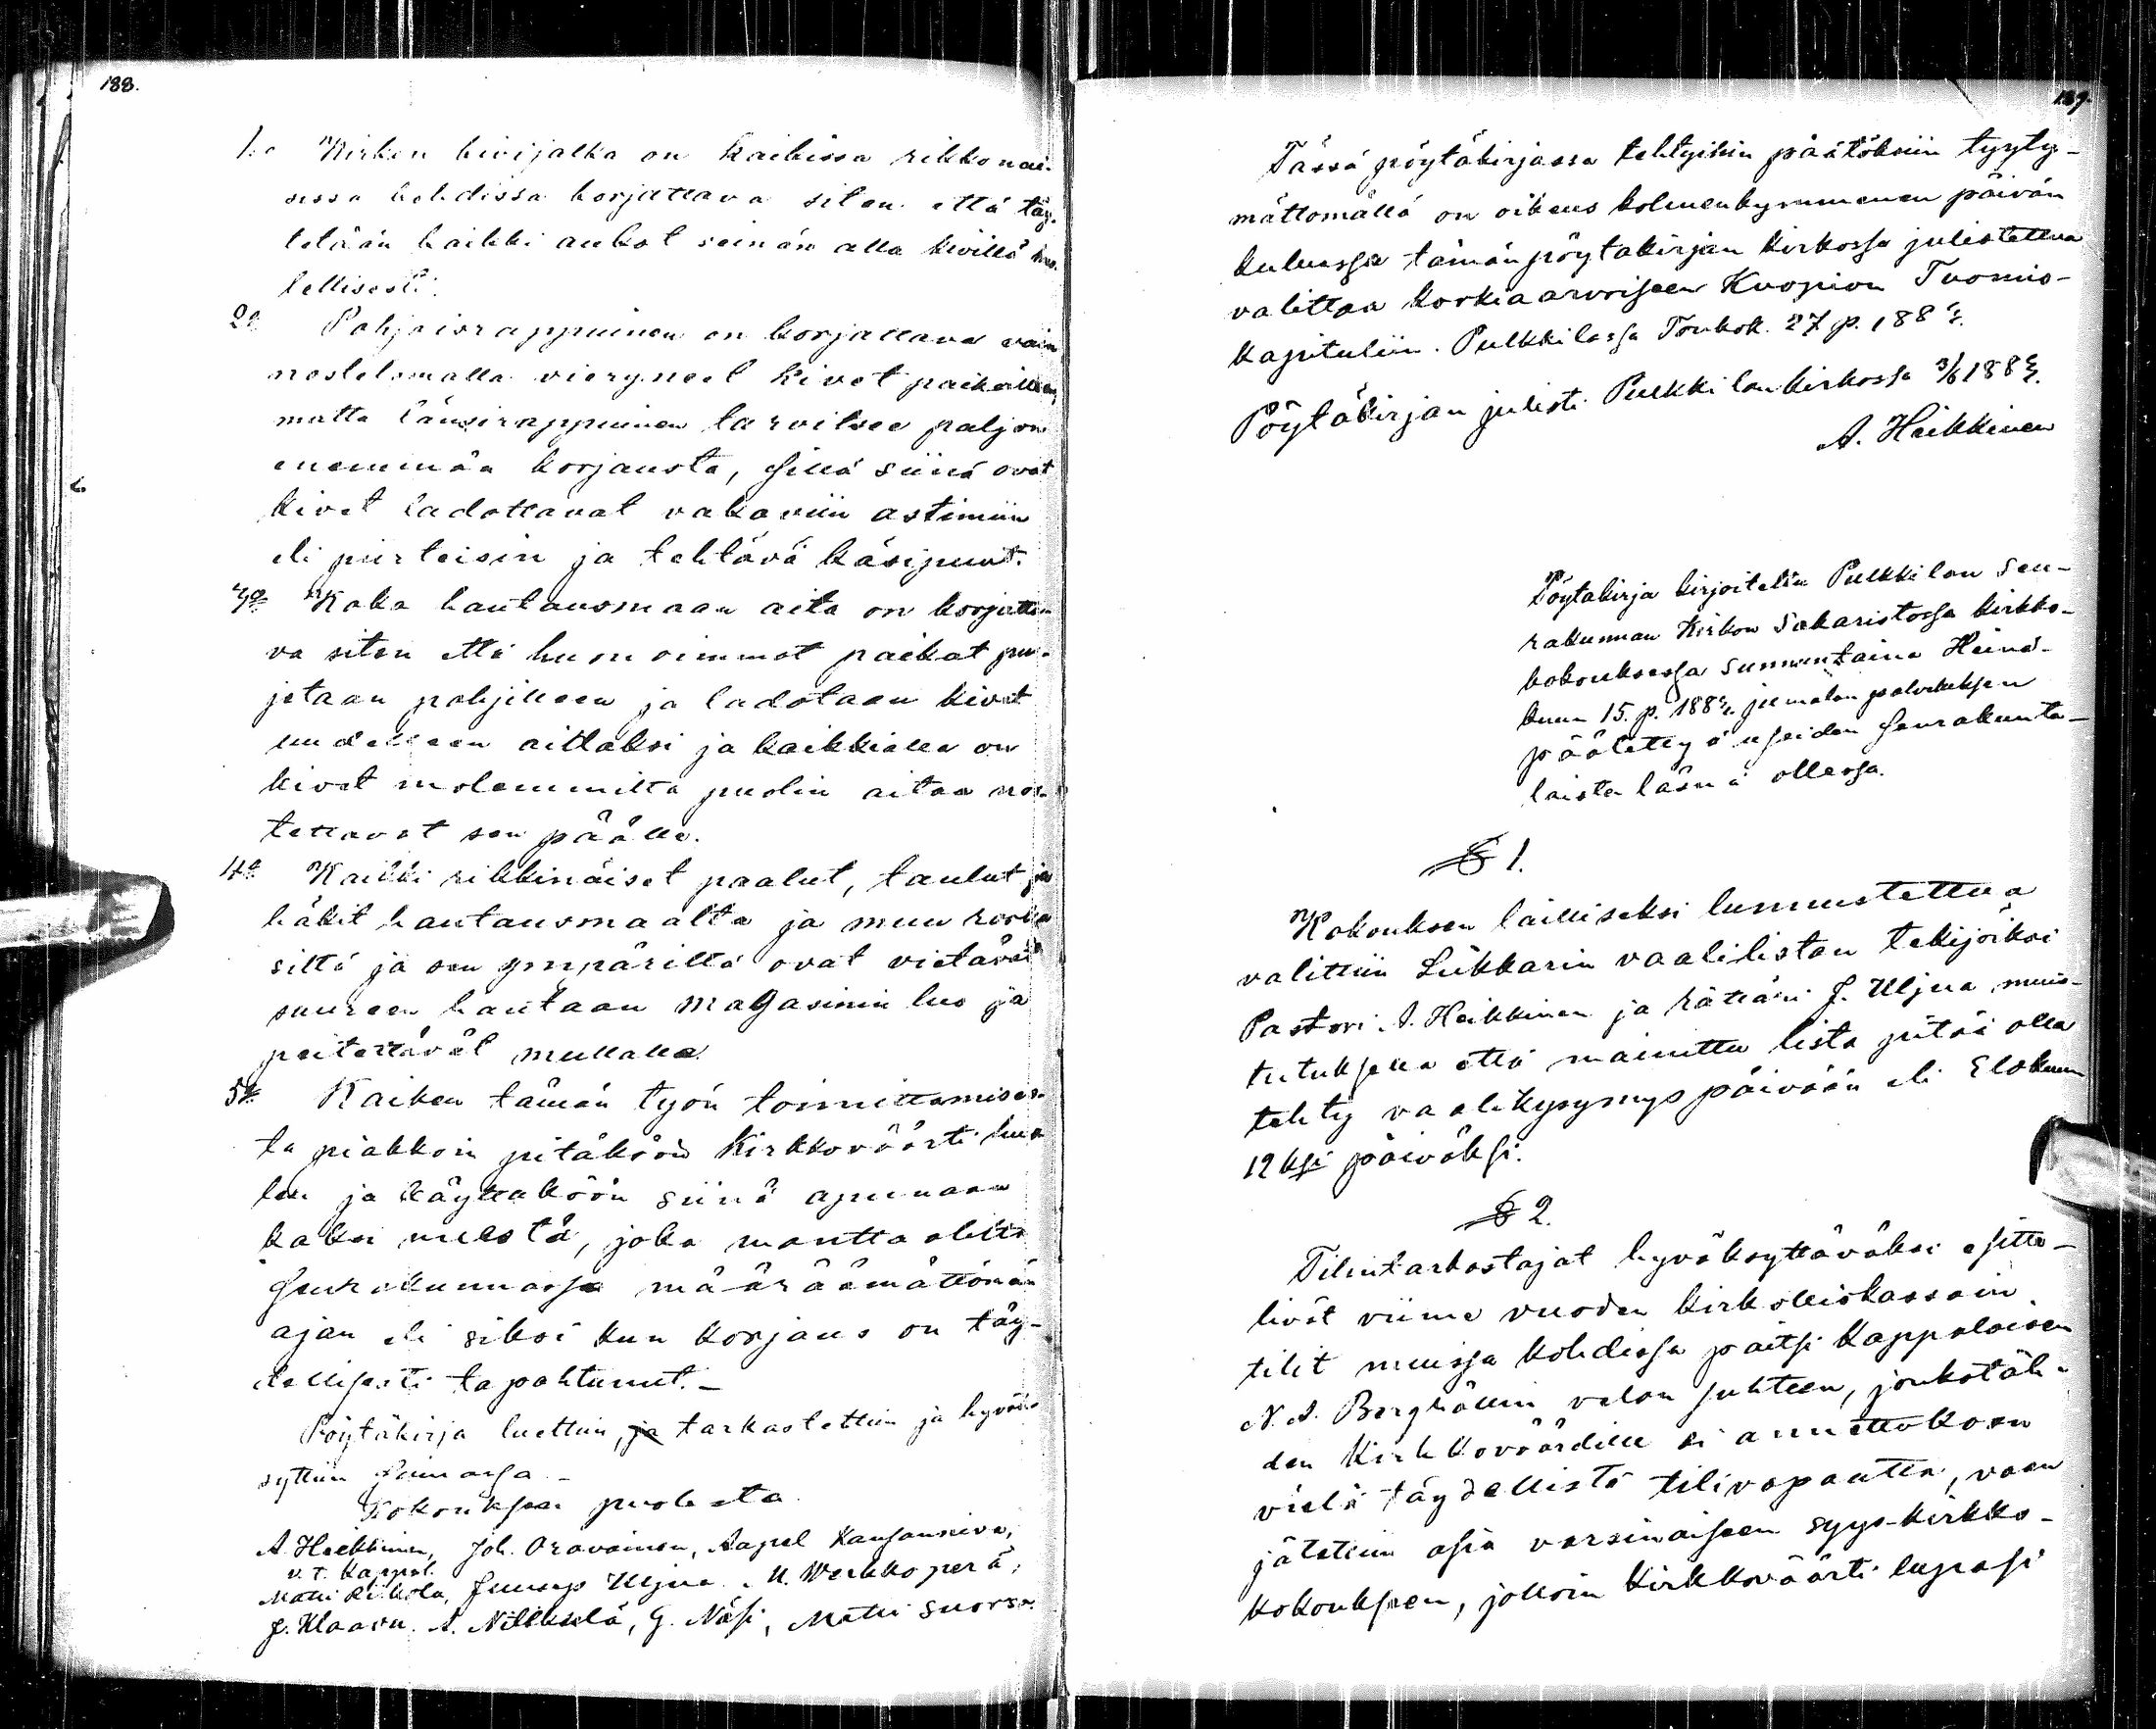 188.
1:o Kirkon kivijalka on kaikissa rikkonai-
sissa kohdissa korjattava siten että täy-
tetään kaikki aukot seinän alla kivillä
lellisesti.
2:o Pohjoisrappuinen on korjattava vain
nostelemalla vieryneet kivet paikoilleen,
mutta länsirappuinen tarvitsee paljon
enemmän korjausta, sillä siinä ovat
kivet ladottavat vakaviin astimiin
eli piirteisin ja tehtävä käsipuut.
3:o Koko hautausmaan aita on korjatta-
va siten että huonoimmat paikat pur-
jetaan pohjilleen ja ladotaan kivet
uudelleen aittaksi ja kaikkialla on
kivet molemmilta puolin aitaa nos-
tettavat sen päälle.
4:o Kaikki rikkinäiset paalut, taulut ja
häkit hautausmaalta ja muu roska
siltä ja sen ympäriltä ovat vietävät
suureen hautaan magasinin luo ja
peitettävät mullalla.
5:o Kaiken tämän työn toimittamises-
ta piakkoin pitäköön Kirkkoväärti huo-
len ja käyttäköön siinä apunaan
kaksi miestä, joka manttaalilta
seurakunnassa määräämättömän
ajan eli siksi kun korjaus on täy-
dellisesti tapahtunut.—
Pöytäkirja luettiin, ja tarkastettiin ja hyväk-
syttiin samassa —
Kokouksen puolesta
A. Heikkinen, Joh. Oravainen, Aapel Kansanniva,
v. t. Kappal.
Matti Rikola, Juusep Uljua. M. Werkkoperä;
J. Klaavu. A. Niilekselä, G. Näsi, Matti Suorsa.
189.
Tässä pöytäkirjassa tehtyihin päätöksiin tyyty-
mättömällä on oikeus kolmenkymmenen päivän
kuluessa tämän pöytäkirjan kirkossa julistettua
valittaa korkiaarvoiseen Kuopion Tuomio-
kapituliin. Pulkkilassa Toukok. 27 p. 188
Pöytäkirjan julisti Pulkkilan kirkossa 3/6 188
A. Heikkinen
Pöytäkirja kirjoitettu Pulkkilan Seu-
rakunnan Kirkon Sakaristossa kirkko-
kokouksessa sunnuntaina Heinä-
kuun 15. p. 188 jumalan palveluksen
päätettyä useiden seurakunta-
laista läsnä ollessa.
§ 1.
Kokouksen lailliseksi lunnustettua
valittiin Lukkarin vaalilistan tekijöiksi
Pastori A. Heikkinen ja räätäri J. Uljua muis-
tutuksella että mainittu lista pitää olla
tehty vaalikysymyspäivään eli Elokuun
12 ksi päiväksi.
§ 2.
Tilintarkastajat hyväksyttäväksi esitte-
livät viime vuoden kirkolliskassain
tilit muissa kohdissa paitsi Kappalaisen
N. A. Berghällin velan suhteen, jonkatäh-
den Kirkkoväärdille ei annettakoon
vielä täydellistä tilivapautta, vaan
jätettiin asia varsinaiseen syys-kirkko-
kokoukseen, jolloin Kirkkoväärti lupasi